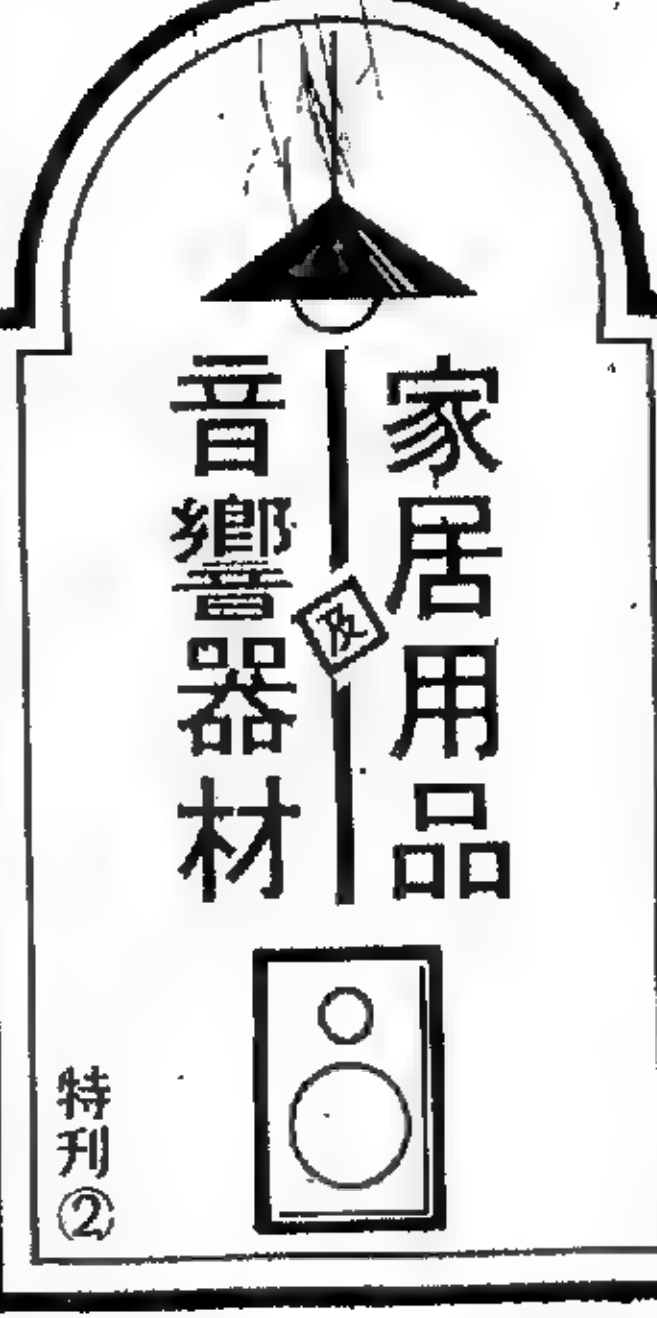 家居用品
及
音響器材
特刊②